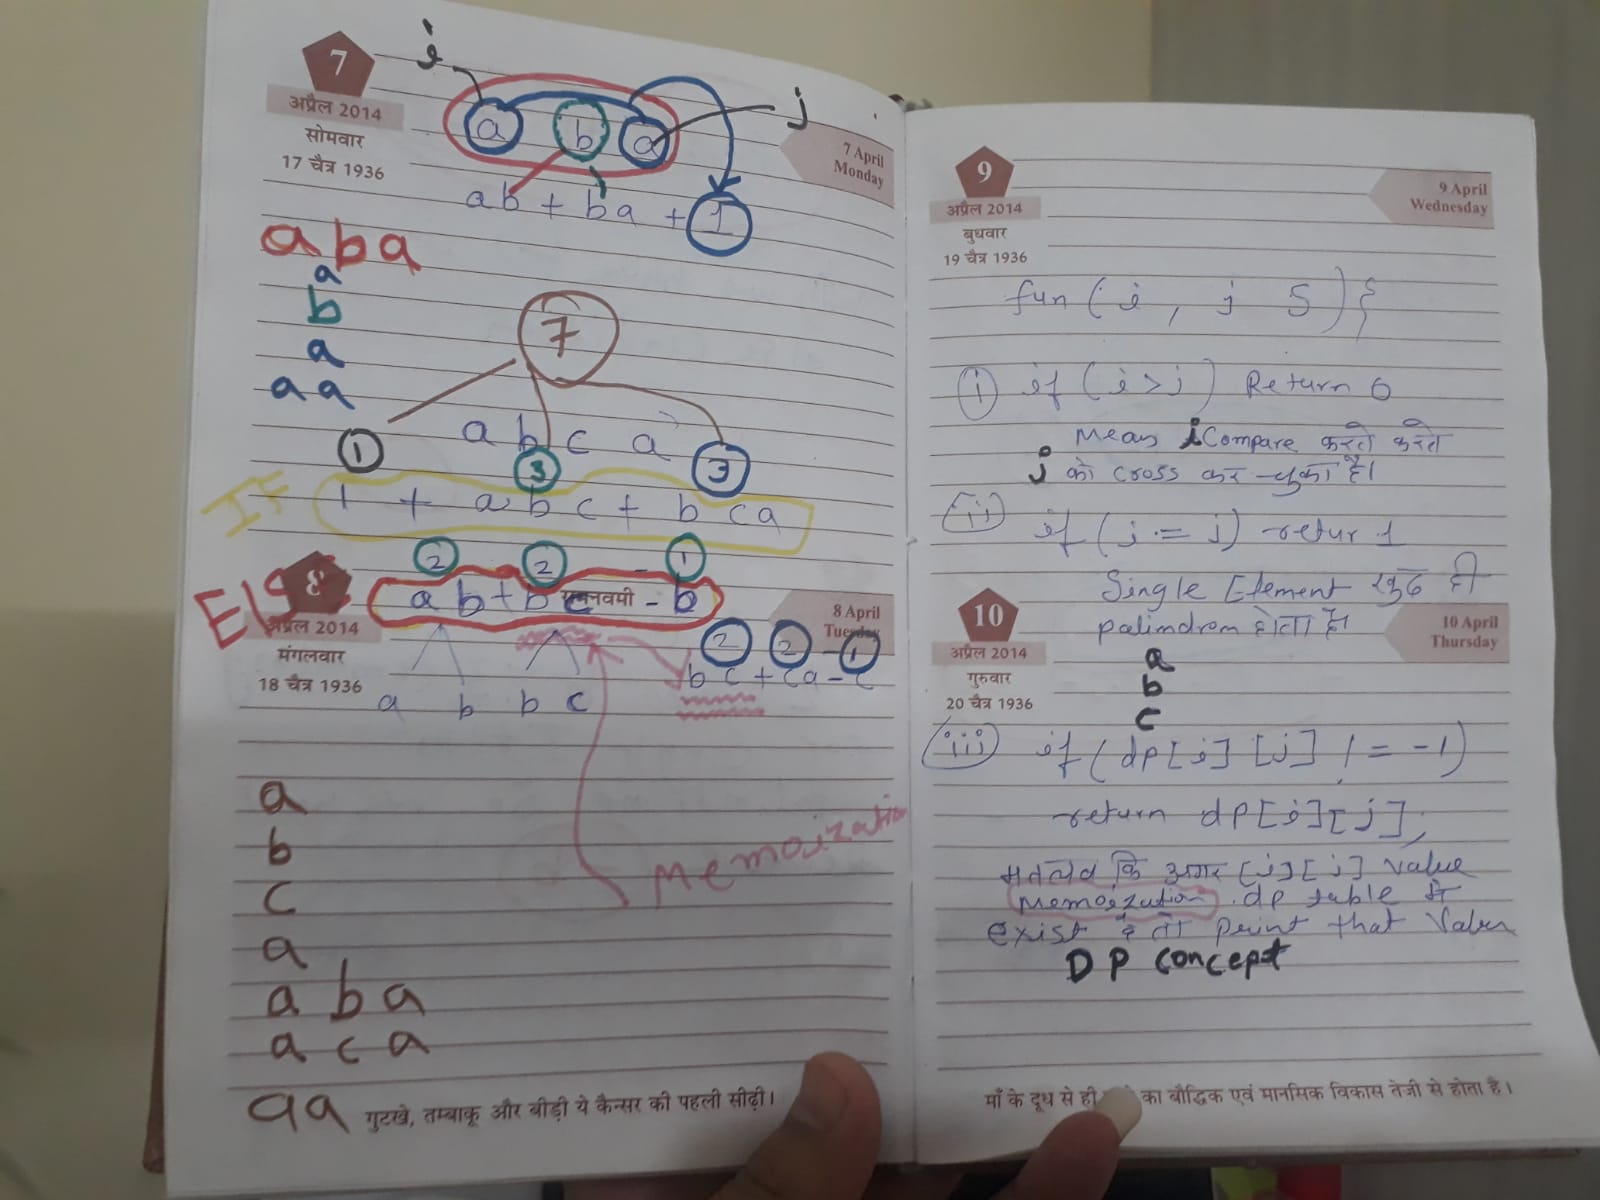 7
अप्रैल 2014
सोमवार
17 चैत्र 1936
7 April
Monday
i
j
a b a
ab + ba + 1
aba
a
b
a
aa
7
a b c a
1 3 3
IF 1 + abc + bca
2 2 - 1
Else ab + bc - b
8
अप्रैल 2014
मंगलवार
18 चैत्र 1936
8 April
Tuesday
2 2 - 1
bc + ca - c
a b b c
Memoization
a
b
c
a
a b a
a c a
aa
गुटखे, तम्बाकू और बीड़ी ये कैन्सर की पहली सीढ़ी।
9
अप्रैल 2014
बुधवार
19 चैत्र 1936
9 April
Wednesday
fun ( i , j S ) {
(i) if ( i > j ) Return 0
Mean i Compare करते करते
j को cross कर चुका है।
(ii) if ( i == j ) retur 1
Single Element खुद ही
palindrom होता है।
10
अप्रैल 2014
गुरुवार
20 चैत्र 1936
10 April
Thursday
a
b
c
(iii) if ( dp[i] [j] != -1 )
return dp[i][j];
मतलब कि अगर [i][j] value
Memoization dp table में
exist है तो print that Value
DP concept
माँ के दूध से ही का बौद्धिक एवं मानसिक विकास तेजी से होता है।